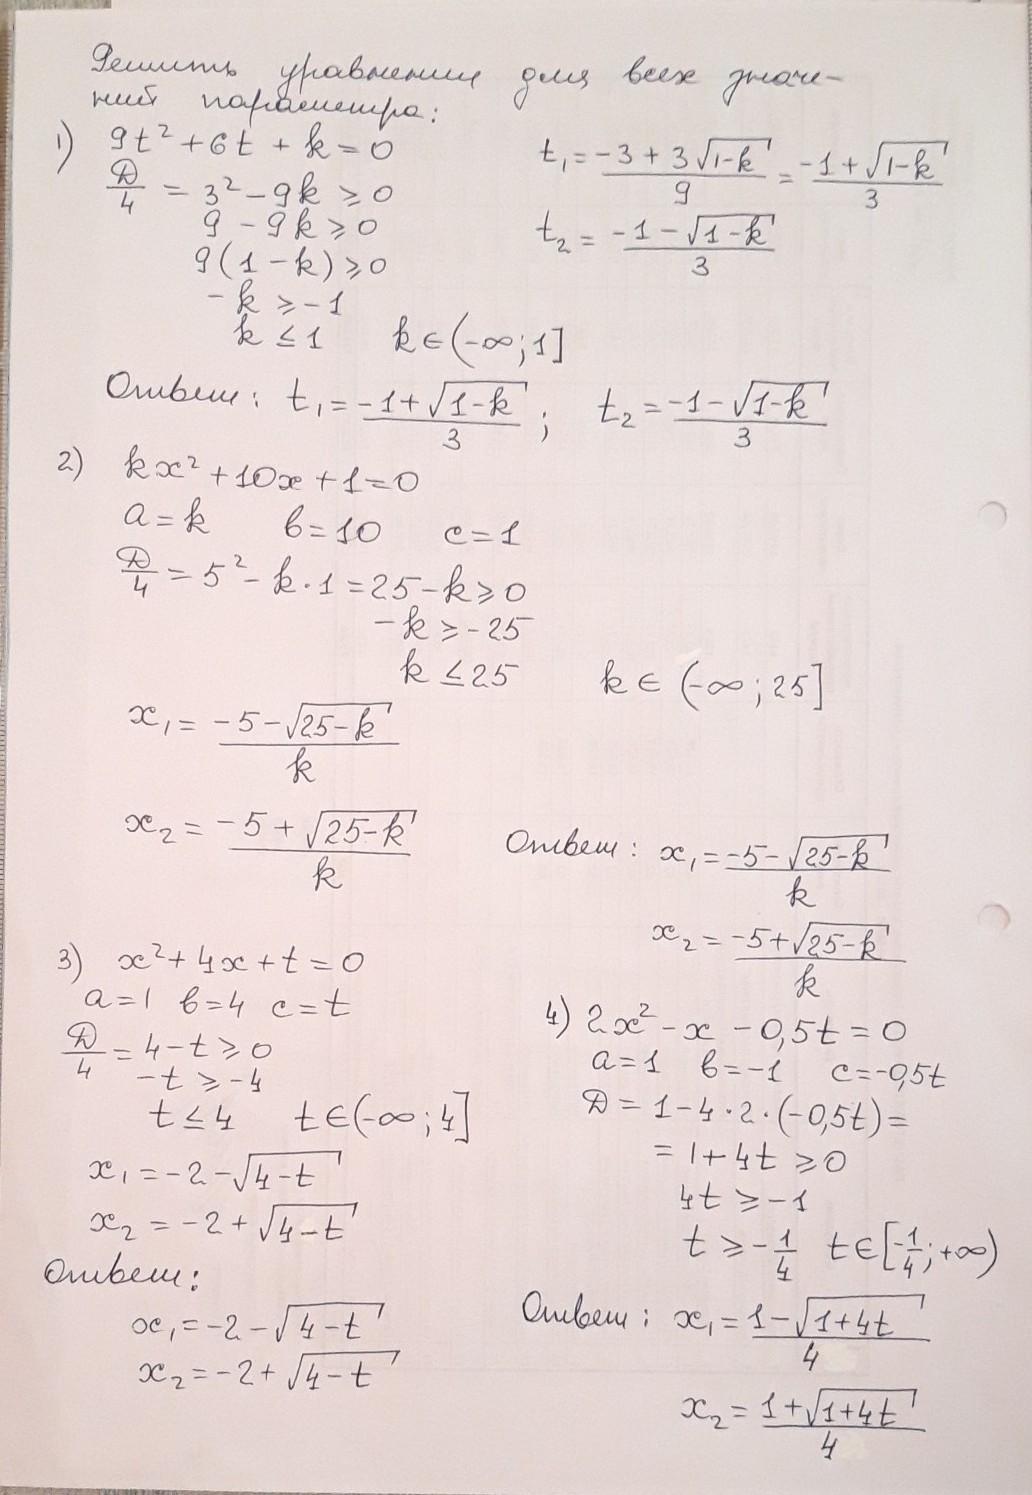 Решить уравнения для всех значе-
ний параметра:
1) 9t² + 6t + k = 0
D/4 = 3² - 9k ≥ 0
9 - 9k ≥ 0
9(1 - k) ≥ 0
-k ≥ -1
k ≤ 1 k ∈ (-∞; 1]
t₁ = (-3 + 3√(1-k))/9 = (-1 + √(1-k))/3
t₂ = (-1 - √(1-k))/3
Ответ: t₁ = (-1 + √(1-k))/3 ; t₂ = (-1 - √(1-k))/3
2) kx² + 10x + 1 = 0
a = k в = 10 c = 1
D/4 = 5² - k · 1 = 25 - k ≥ 0
-k ≥ -25
k ≤ 25 k ∈ (-∞; 25]
x₁ = (-5 - √(25-k))/k
x₂ = (-5 + √(25-k))/k
Ответ: x₁ = (-5 - √(25-k))/k
x₂ = (-5 + √(25-k))/k
3) x² + 4x + t = 0
a = 1 в = 4 c = t
D/4 = 4 - t ≥ 0
-t ≥ -4
t ≤ 4 t ∈ (-∞; 4]
x₁ = -2 - √(4-t)
x₂ = -2 + √(4-t)
Ответ:
x₁ = -2 - √(4-t)
x₂ = -2 + √(4-t)
4) 2x² - x - 0,5t = 0
a = 1 в = -1 c = -0,5t
D = 1 - 4 · 2 · (-0,5t) =
= 1 + 4t ≥ 0
4t ≥ -1
t ≥ -1/4 t ∈ [-1/4; +∞)
Ответ: x₁ = (1 - √(1+4t))/4
x₂ = (1 + √(1+4t))/4